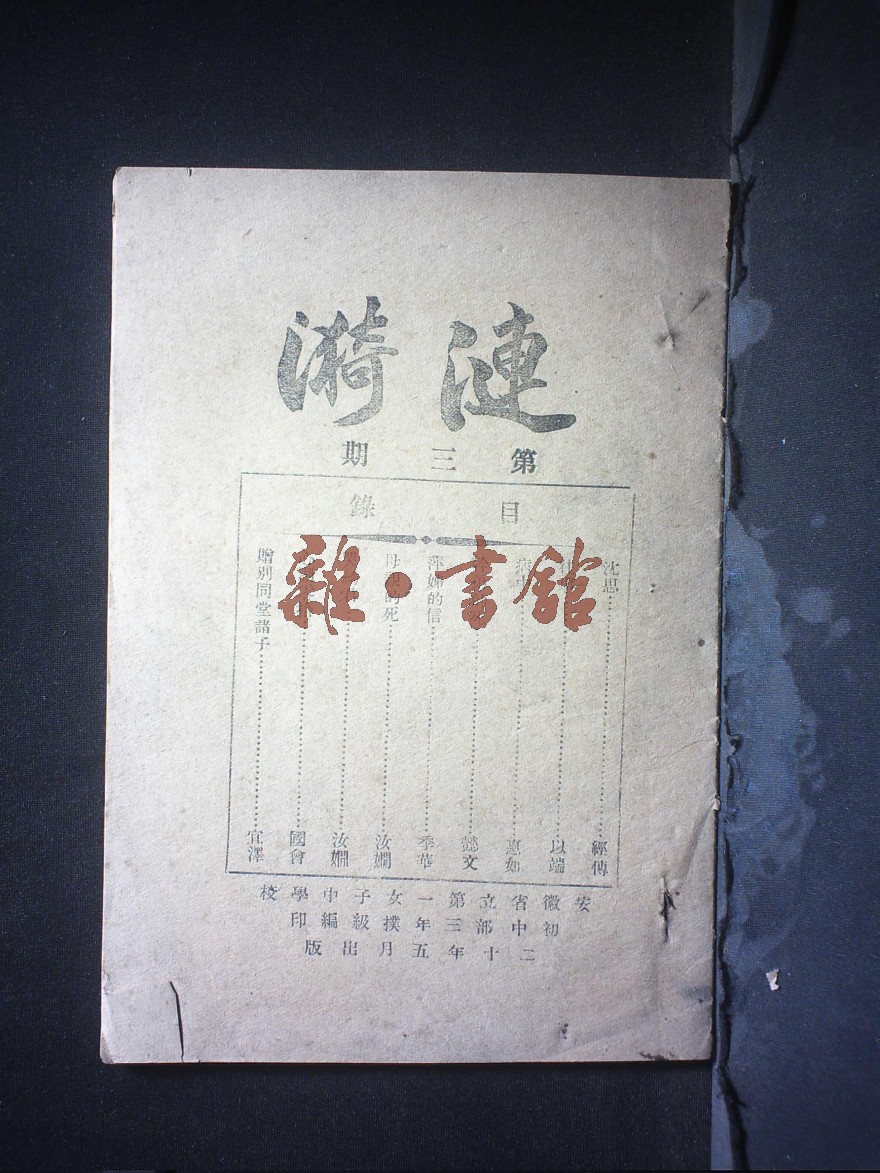 漣漪
第三期
目錄
沈思 經傳
以端
病中 惠如
懿文
萍姊的信 季華
母親的死 汝嫻
汝嫻
國會
贈別同堂諸子 宜澤
安徽省立第一女子中學校
初中部三年級編印
二十年五月出版
雜·書館